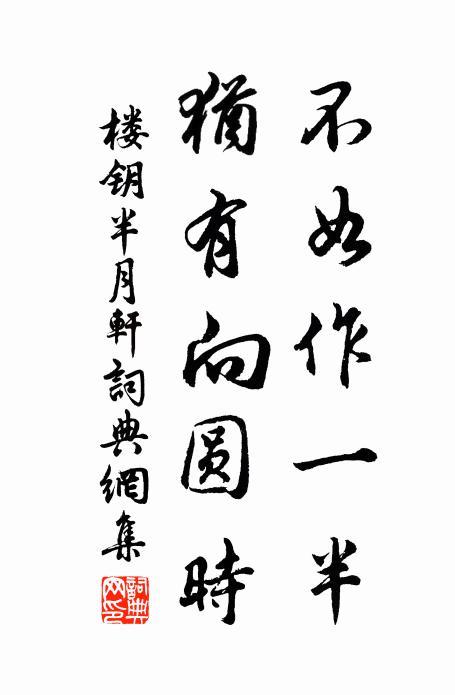 不如作一半
猶有向圆時
楼钥半月軒詞典網集
詞典网印